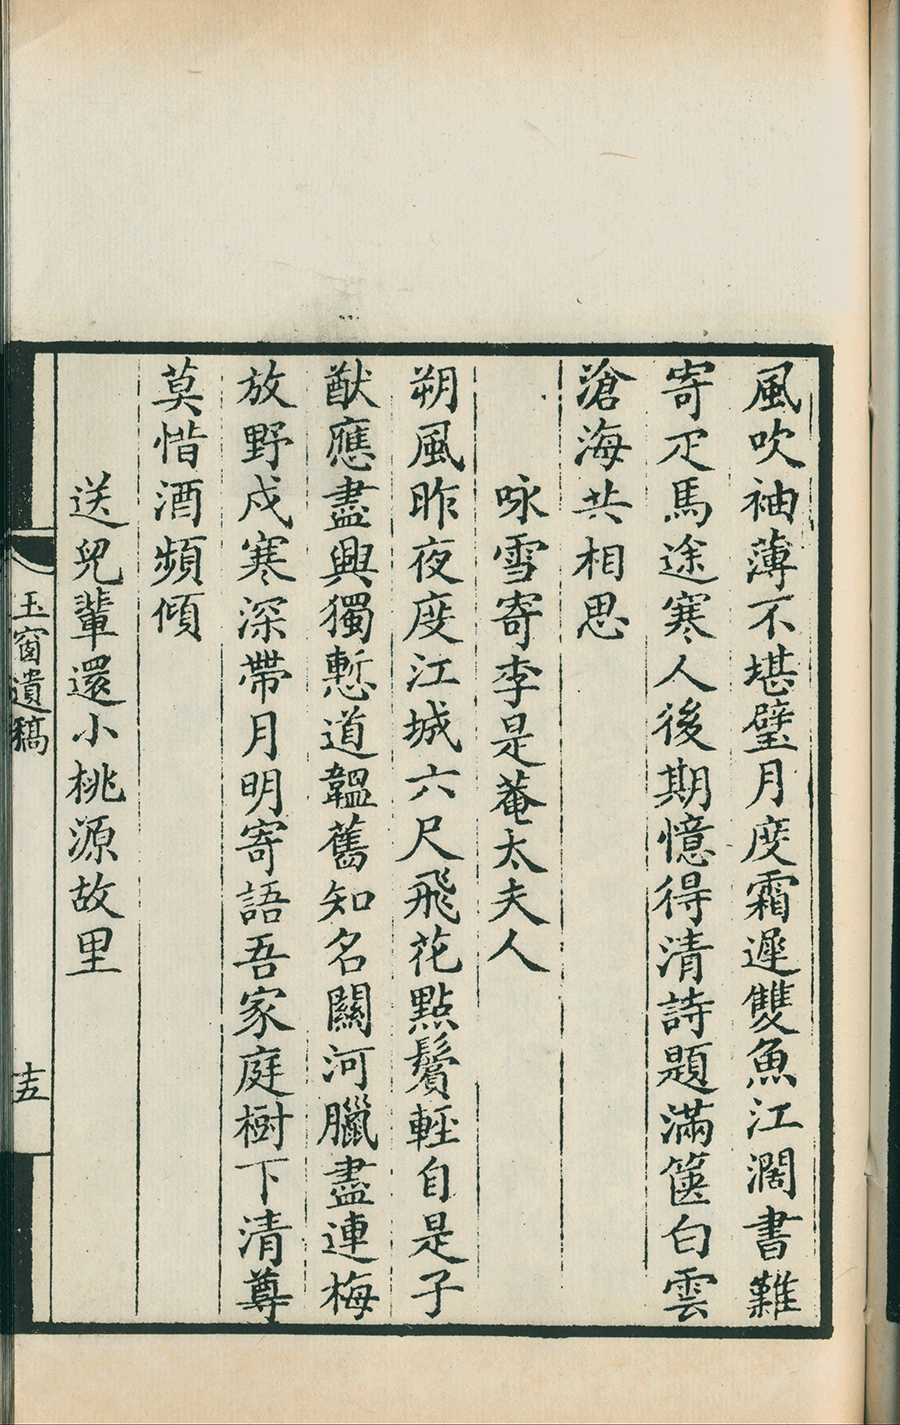 風吹袖薄不堪璧月度霜遲雙魚江濶書難
寄疋馬途寒人後期憶得清詩題滿篋白雲
滄海共相思
咏雪寄李是菴太夫人
朔風昨夜度江城六尺飛花點鬢輕自是子
猷應盡興獨慙道韞舊知名關河臘盡連梅
放野戍寒深帶月明寄語吾家庭樹下清尊
莫惜酒頻傾
送兒輩還小桃源故里
玉窗遺稿
十五